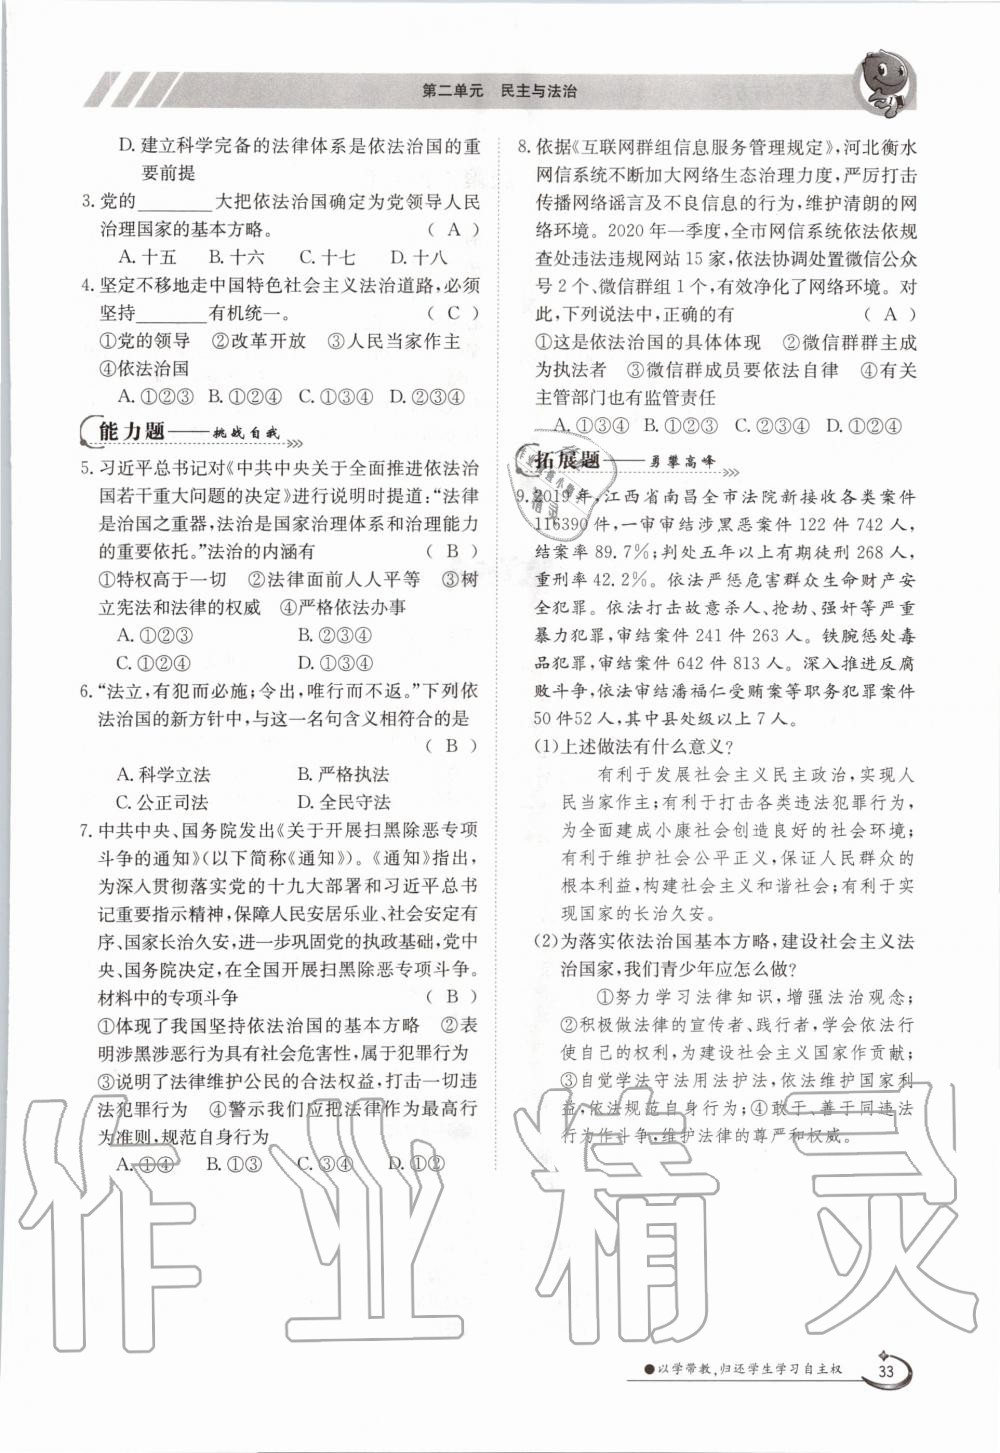 第二单元 民主与法治
D. 建立科学完备的法律体系是依法治国的重
要前提
3. 党的________大把依法治国确定为党领导人民
治理国家的基本方略。 ( A )
A. 十五 B. 十六 C. 十七 D. 十八
4. 坚定不移地走中国特色社会主义法治道路,必须
坚持________有机统一。 ( C )
①党的领导 ②改革开放 ③人民当家作主
④依法治国
A. ①②③ B. ①②④ C. ①③④ D. ②③④
能力题——挑战自我
5. 习近平总书记对《中共中央关于全面推进依法治
国若干重大问题的决定》进行说明时提道:“法律
是治国之重器,法治是国家治理体系和治理能力
的重要依托。”法治的内涵有 ( B )
①特权高于一切 ②法律面前人人平等 ③树
立宪法和法律的权威 ④严格依法办事
A. ①②③ B. ②③④
C. ①②④ D. ①③④
6. “法立,有犯而必施;令出,唯行而不返。”下列依
法治国的新方针中,与这一名句含义相符合的是
( B )
A. 科学立法 B. 严格执法
C. 公正司法 D. 全民守法
7. 中共中央、国务院发出《关于开展扫黑除恶专项
斗争的通知》(以下简称《通知》)。《通知》指出,
为深入贯彻落实党的十九大部署和习近平总书
记重要指示精神,保障人民安居乐业、社会安定有
序、国家长治久安,进一步巩固党的执政基础,党中
央、国务院决定,在全国开展扫黑除恶专项斗争。
材料中的专项斗争 ( B )
①体现了我国坚持依法治国的基本方略 ②表
明涉黑涉恶行为具有社会危害性,属于犯罪行为
③说明了法律维护公民的合法权益,打击一切违
法犯罪行为 ④警示我们应把法律作为最高行
为准则,规范自身行为
A. ①④ B. ①③ C. ③④ D. ①②
8. 依据《互联网群组信息服务管理规定》,河北衡水
网信系统不断加大网络生态治理力度,严厉打击
传播网络谣言及不良信息的行为,维护清朗的网
络环境。2020 年一季度,全市网信系统依法依规
查处违法违规网站 15 家,依法协调处置微信公众
号 2 个、微信群组 1 个,有效净化了网络环境。对
此,下列说法中,正确的有 ( A )
①这是依法治国的具体体现 ②微信群群主成
为执法者 ③微信群成员要依法自律 ④有关
主管部门也有监管责任
A. ①③④ B. ①②③ C. ②③④ D. ①②④
拓展题——勇攀高峰
9. 2019 年,江西省南昌全市法院新接收各类案件
116390 件,一审审结涉黑恶案件 122 件 742 人,
结案率 89.7%;判处五年以上有期徒刑 268 人,
重刑率 42.2%。依法严惩危害群众生命财产安
全犯罪。依法打击故意杀人、抢劫、强奸等严重
暴力犯罪,审结案件 241 件 263 人。铁腕惩处毒
品犯罪,审结案件 642 件 813 人。深入推进反腐
败斗争,依法审结潘福仁受贿案等职务犯罪案件
50 件52人,其中县处级以上 7 人。
(1)上述做法有什么意义?
有利于发展社会主义民主政治,实现人
民当家作主;有利于打击各类违法犯罪行为,
为全面建成小康社会创造良好的社会环境;
有利于维护社会公平正义,保证人民群众的
根本利益,构建社会主义和谐社会;有利于实
现国家的长治久安。
(2)为落实依法治国基本方略,建设社会主义法
治国家,我们青少年应怎么做?
①努力学习法律知识,增强法治观念;
②积极做法律的宣传者、践行者,学会依法行
使自己的权利,为建设社会主义国家作贡献;
③自觉学法守法用法护法,依法维护国家利
益,依法规范自身行为;④敢于、善于同违法
行为作斗争,维护法律的尊严和权威。
作业精灵
●以学带教,归还学生学习自主权
33